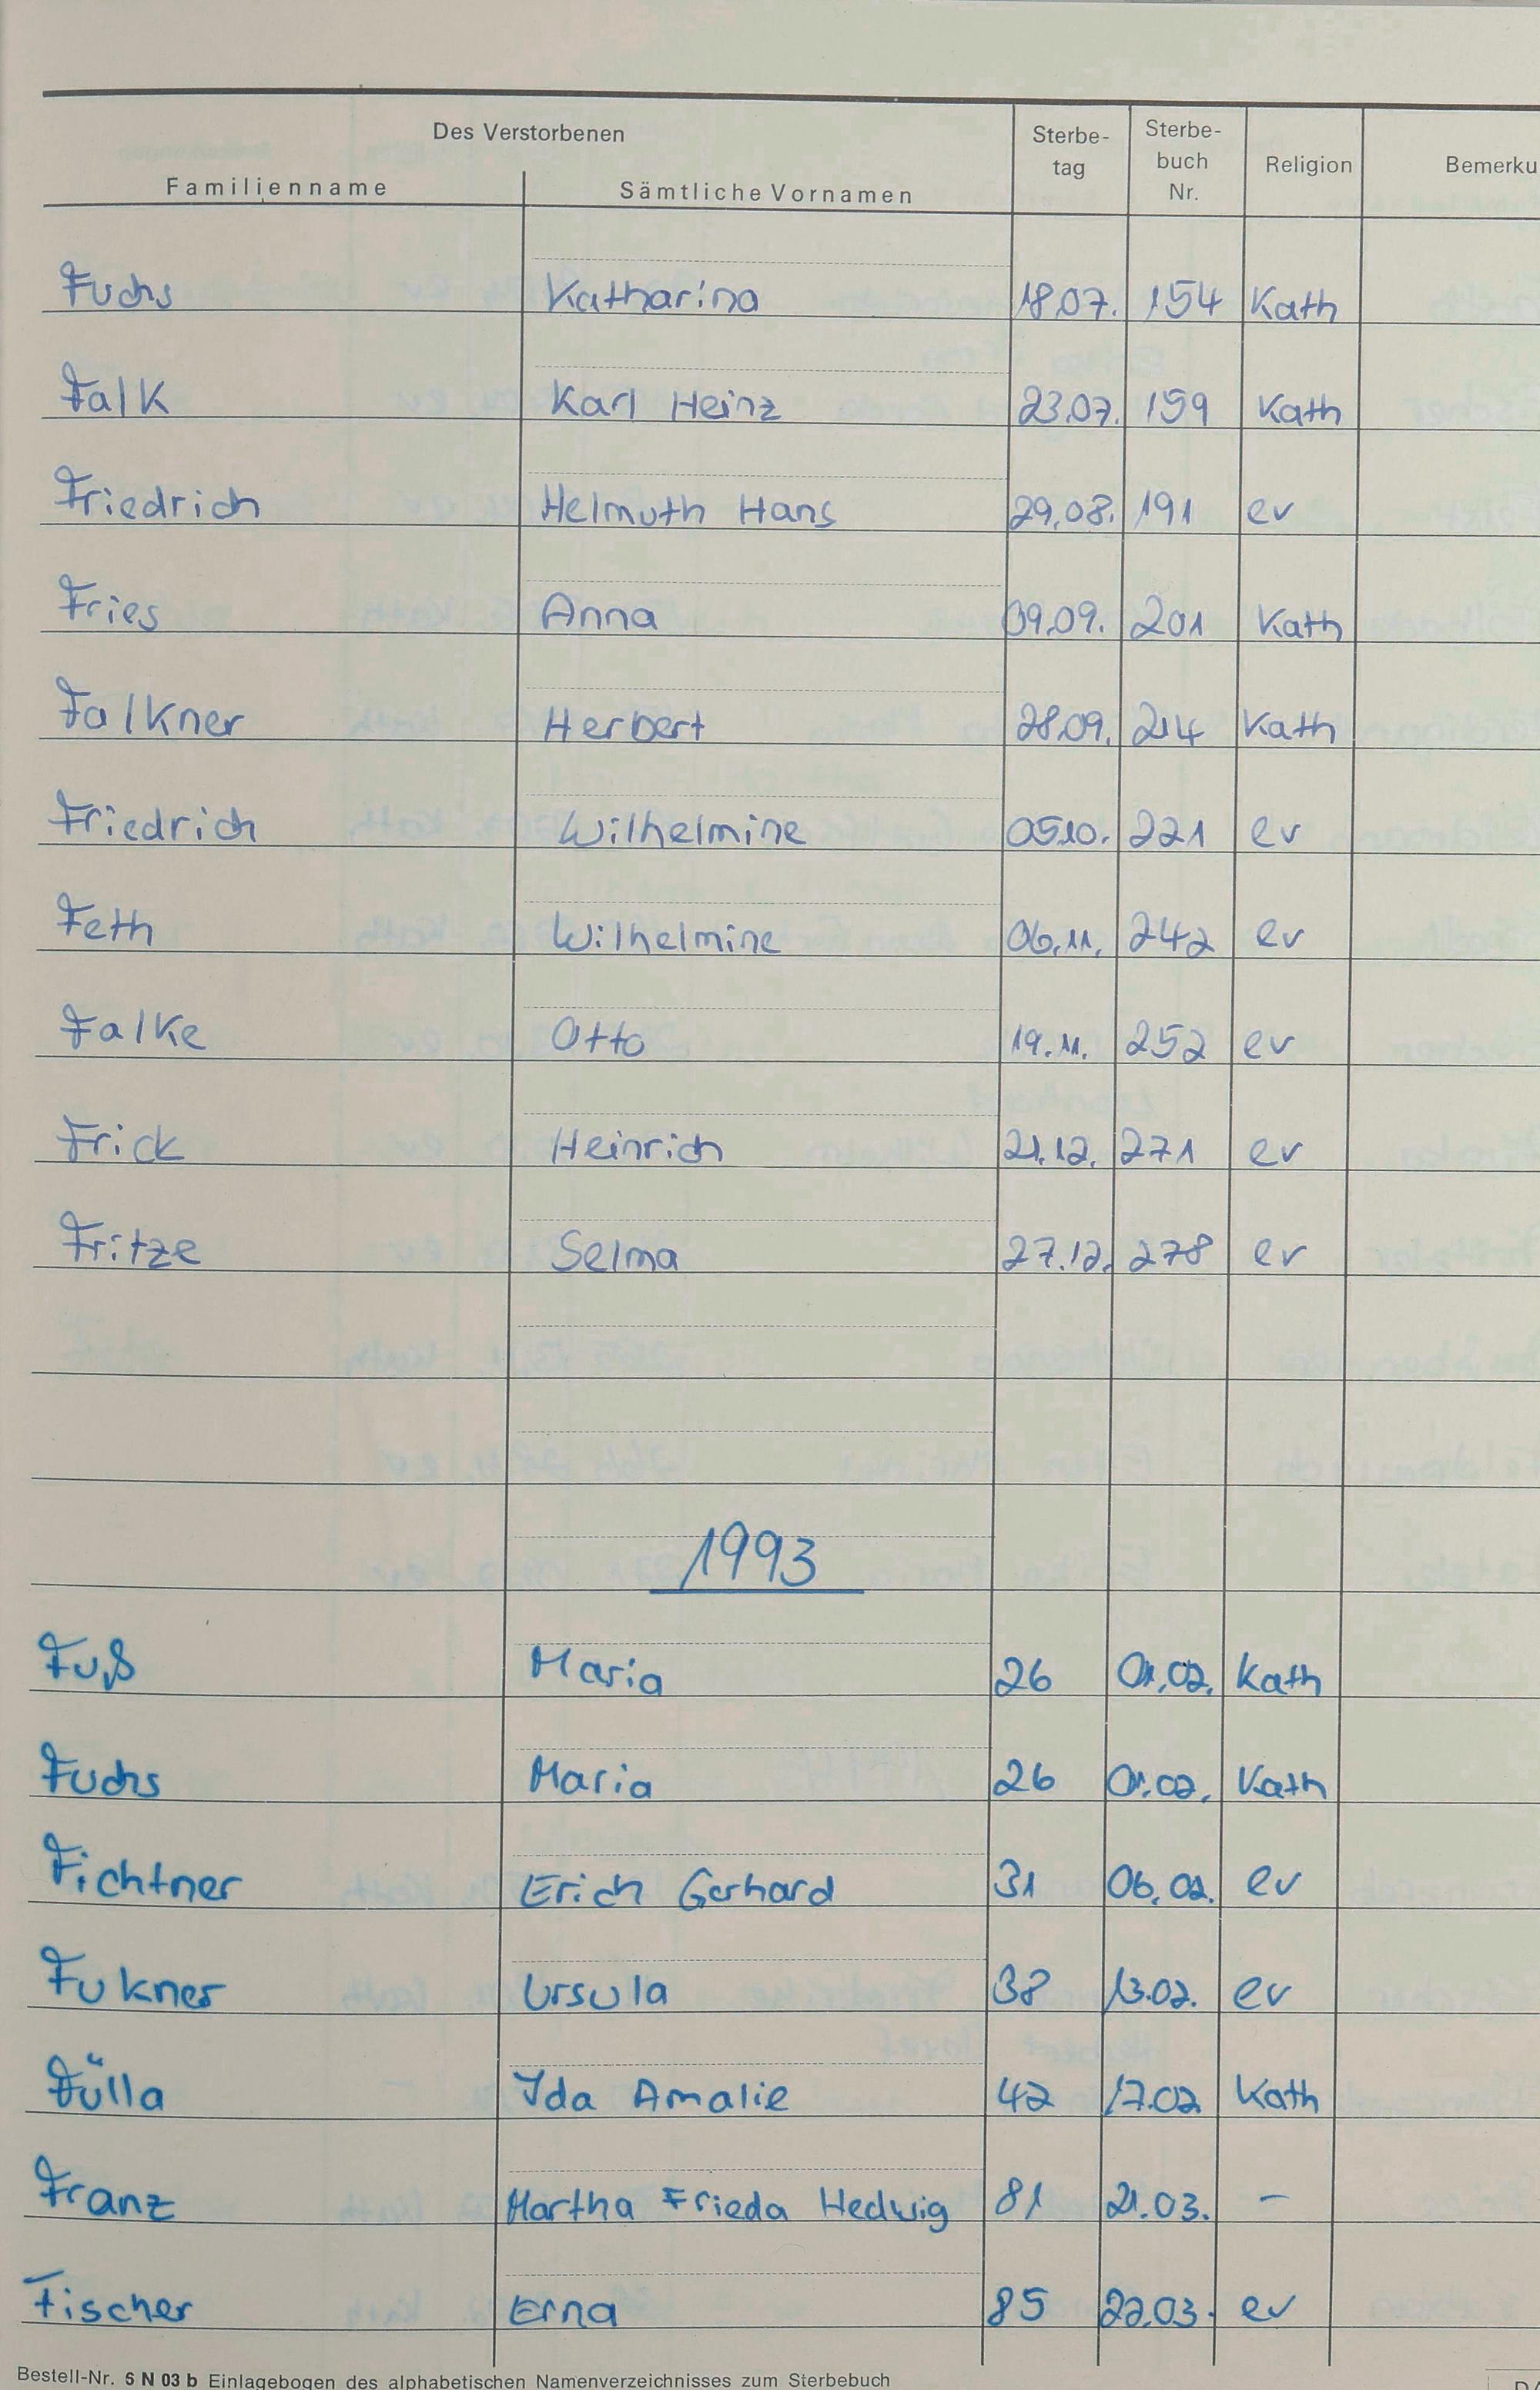 Des Verstorbenen
Sterbe-
tag
Sterbe-
buch
Nr.
Religion
Bemerku
Familienname Sämtliche Vornamen
Fuchs Katharina 18.07. 154 Kath
Falk Karl Heinz 23.07. 159 Kath
Friedrich Helmuth Hans 29.08. 191 ev
Fries Anna 09.09. 201 Kath
Falkner Herbert 28.09. 214 Kath
Friedrich Wilhelmine 05.10. 221 ev
Feth Wilhelmine 06.11. 242 ev
Falke Otto 19.11. 252 ev
Frick Heinrich 21.12. 271 ev
Fritze Selma 27.12. 278 ev
1993
Fuß Maria 26 01.02. Kath
Fuchs Maria 26 01.02. Kath
Fichtner Erich Gerhard 31 06.02. ev
Fukner Ursula 38 13.02. ev
Fülla Ida Amalie 42 17.02 Kath
Franz Martha Frieda Hedwig 81 21.03. –
Fischer Erna 85 22.03. ev
Bestell-Nr. 5 N 03 b Einlagebogen des alphabetischen Namenverzeichnisses zum Sterbebuch